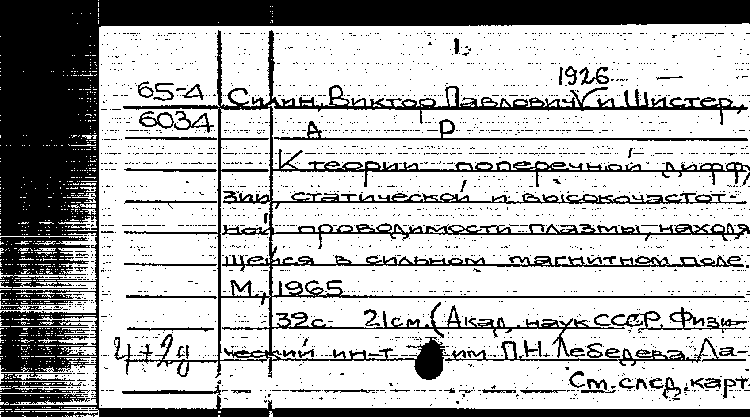 1.
1926
65-4 Силин, Виктор Павлович и Шистер,
6034 А Р
К теории поперечной дифф
зии, статической и высокочастот-
ной проводимости плазмы, находя
щейся в сильном магнитном поле.
М., 1965
32с. 21см. (Акад. наук СССР. Физи-
ческий ин-т им. П.Н. Лебедева. Ла-
См. след. карт